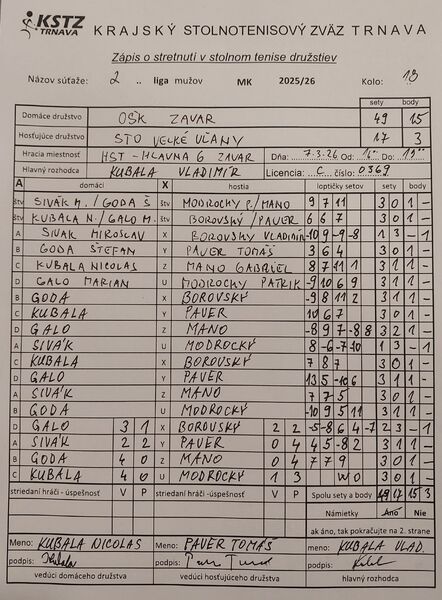 KSTZ TRNAVA KRAJSKÝ STOLNOTENISOVÝ ZVÄZ TRNAVA
Zápis o stretnutí v stolnom tenise družstiev
Názov súťaže: 2 .. liga mužov MK 2025/26 Kolo: 18
sety body
Domáce družstvo OŠK ZAVAR 49 15
Hosťujúce družstvo STO VEĽKÉ UĽANY 17 3
Hracia miestnosť HST - HLAVNÁ 6 ZAVAR Dňa: 7.3.26 Od: Do:
Hlavný rozhodca KUBALA VLADIMÍR Licencia: C číslo: 0369
A domáci X hostia loptičky setov sety body
štv SIVÁK M. / GODA Š štv MODROCKY P./MANO 9 7 11 3 0 1 -
štv KUBALA N./ GALO M. štv BOROVSKÝ / PAVER 6 6 7 3 0 1 -
A SIVÁK MIROSLAV X BOROVSKY VLADIMÍR -10 9 -9 -8 1 3 - 1
B GODA ŠTEFAN Y PAVER TOMÁŠ 3 6 4 3 0 1 -
C KUBALA NICOLAS Z MANO GABRIEL 8 7 11 1 3 1 1 -
D GALO MARIAN U MODROCKY PATRIK -9 10 6 9 3 1 1 -
B GODA X BOROVSKÝ -9 8 11 2 3 1 1 -
C KUBALA Y PAVER 10 6 7 3 0 1 -
D GALO Z MANO -8 9 7 -8 8 3 2 1 -
A SIVÁK U MODROCKÝ 8 -6 -7 -10 1 3 - 1
C KUBALA X BOROVSKÝ 7 8 7 3 0 1 -
D GALO Y PAVER 13 5 -10 6 3 1 1 -
A SIVÁK Z MANO 7 7 5 3 0 1 -
B GODA U MODROCKÝ -10 9 5 11 3 1 1 -
D GALO 3 1 X BOROVSKÝ 2 2 -5 -8 6 4 -7 2 3 - 1
A SIVÁK 2 2 Y PAVER 0 4 4 5 -8 2 3 1 1 -
B GODA 4 0 Z MANO 0 4 7 7 9 3 0 1 -
C KUBALA 4 0 U MODROCKÝ 1 3 WO 3 0 1 -
striedaní hráči - úspešnosť V P striedaní hráči - úspešnosť V P Spolu sety a body 49 17 15 3
Námietky Áno nie
ak áno, tak pokračujte na 2. strane
Meno: KUBALA NICOLAS Meno: PAVER TOMÁŠ Meno: KUBALA VLAD.
podpis: podpis: podpis:
vedúci domáceho družstva vedúci hosťujúceho družstva hlavný rozhodca